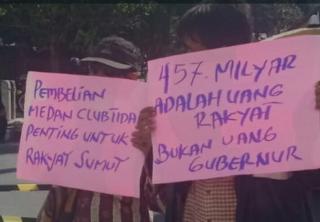 PEMBELIAN
MEDAN CLUB TIDA
PENTING UNTUK
RAKYAT SUMUT
457. MILYAR
ADALAH UANG
RAKYAT
BUKAN UANG
GUBERNUR